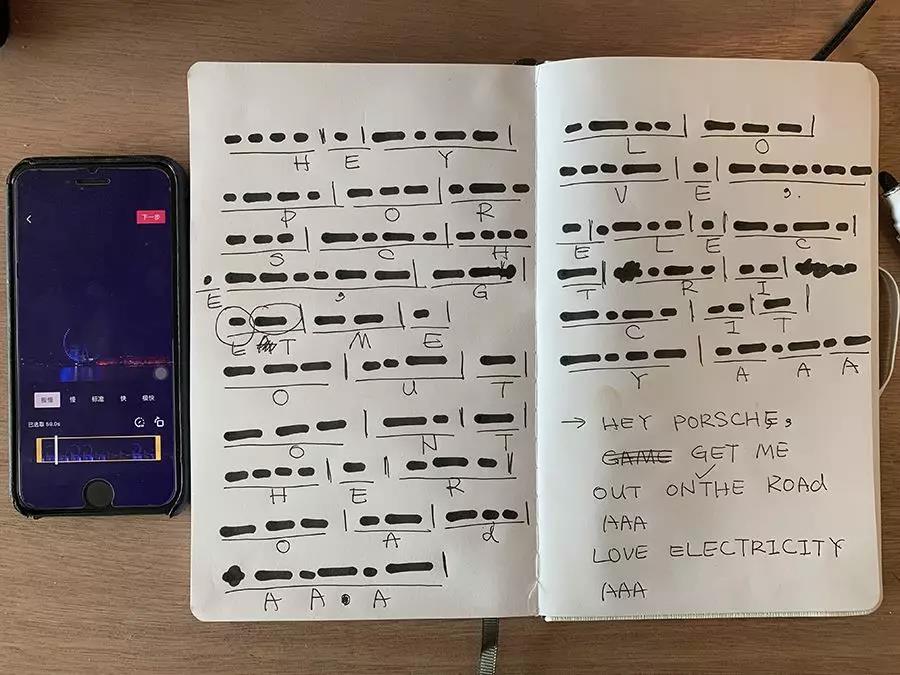 下一步
极慢 慢 标准 快 极快
已选取 59.0s
H E Y
P O R
S C H
E , G
E T M E
O U T
O N T
H E R
O A d
A A A
L O
V E ,
E L E C
T R I
C I T
Y A A A
→ HEY PORSCHE,
GAME GET ME
OUT ON THE ROAd
AAA
LOVE ELECTRICITY
AAA